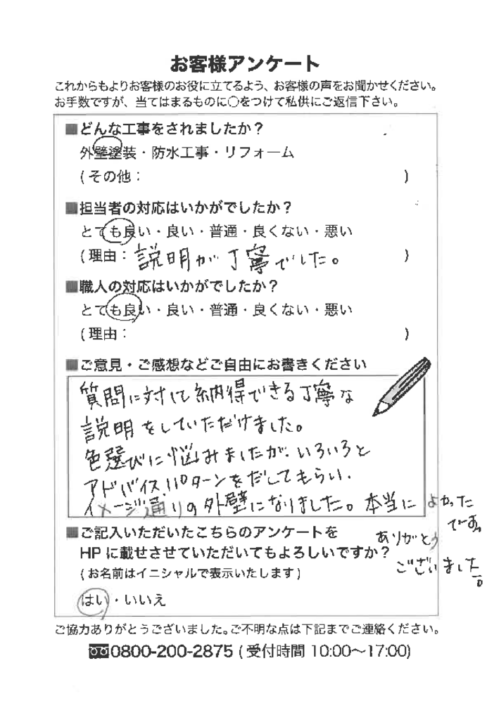 お客様アンケート
これからもよりお客様のお役に立てるよう、お客様の声をお聞かせください。
お手数ですが、当てはまるものに○をつけて私供にご返信下さい。
■どんな工事をされましたか？
外壁塗装・防水工事・リフォーム
(その他： )
■担当者の対応はいかがでしたか？
とても良い・良い・普通・良くない・悪い
(理由： 説明が丁寧でした。 )
■職人の対応はいかがでしたか？
とても良い・良い・普通・良くない・悪い
(理由： )
■ご意見・ご感想などご自由にお書きください
質問に対して納得できる丁寧な
説明をしていただけました。
色選びに悩みましたが、いろいろと
アドバイス、パターンをだしてもらい、
イメージ通りの外壁になりました。本当によかった
です。
ありがとう
ございました。
■ご記入いただいたこちらのアンケートを
HPに載せさせていただいてもよろしいですか？
(お名前はイニシャルで表示いたします)
はい・いいえ
ご協力ありがとうございました。ご不明な点は下記までご連絡ください。
0800-200-2875 (受付時間 10:00〜17:00)